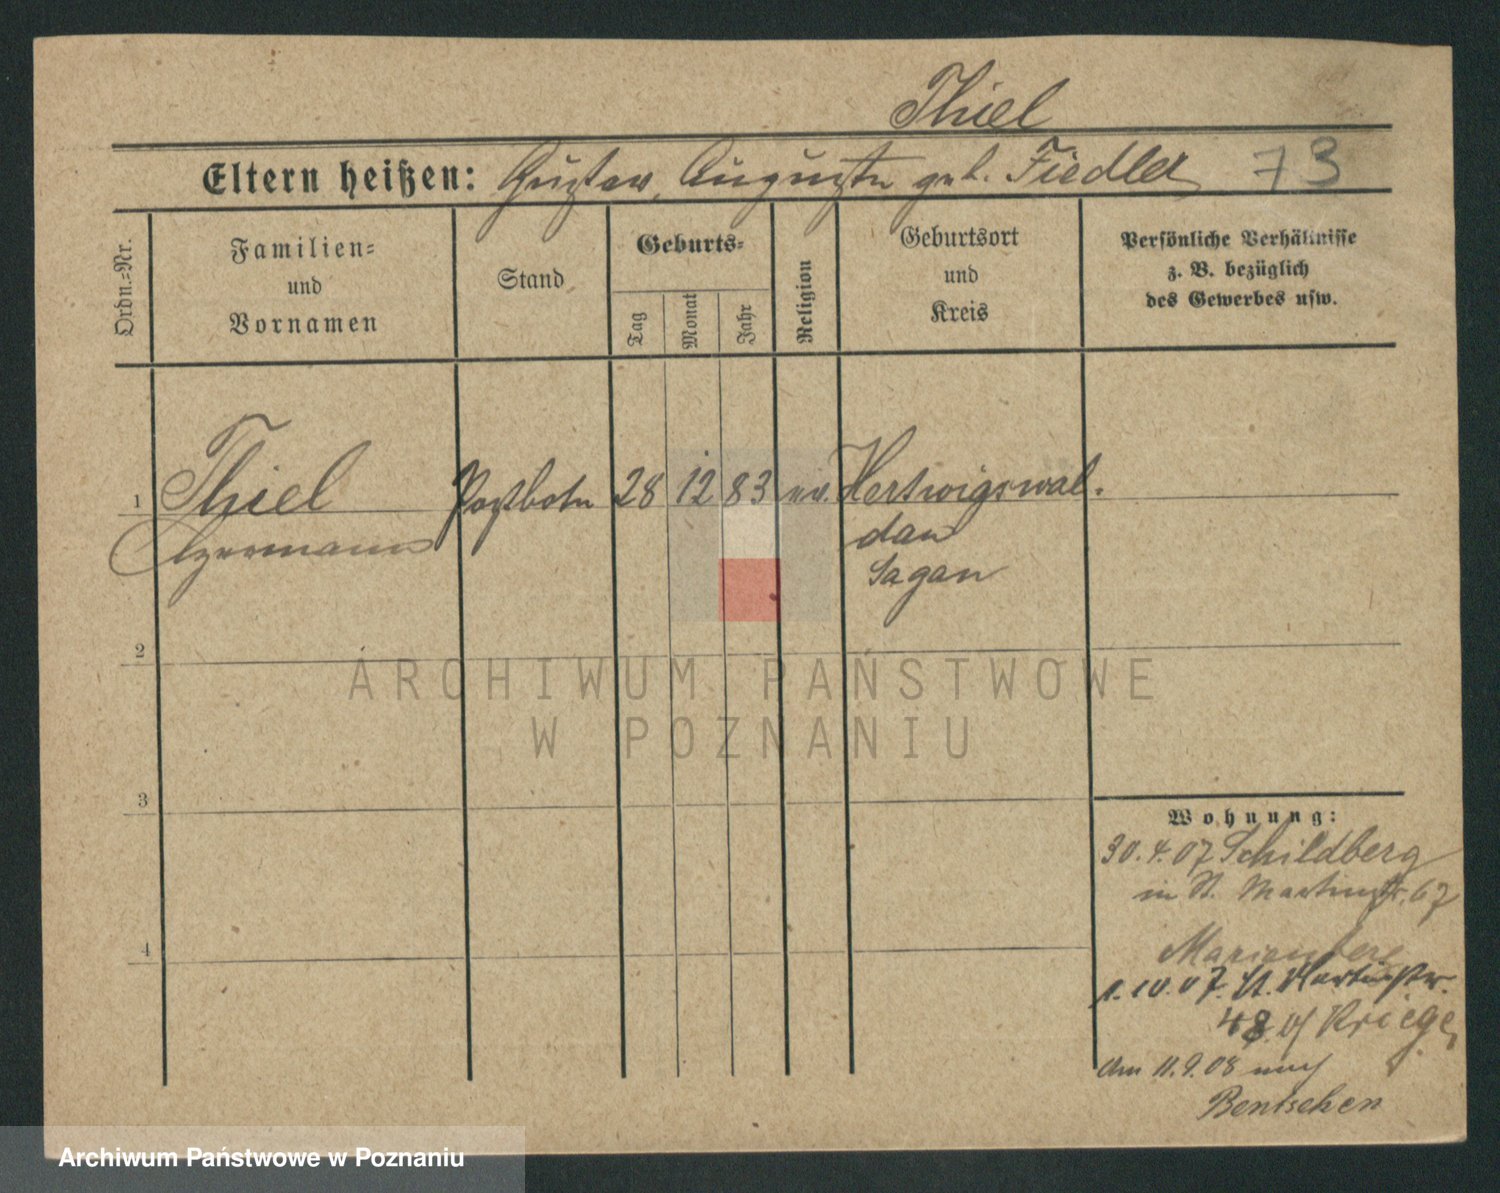 Thiel
Eltern heißen: Gustav, Auguste geb. Fiedler 73
Ordn.=Nr.
Familien=
und
Vornamen
Stand
Geburts=
Tag
Monat
Jahr
Religion
Geburtsort
und
Kreis
Persönliche Verhältnisse
z. B. bezüglich
des Gewerbes usw.
1 Thiel Postbote 28 12 83 ev. Hertwigswal-
Hermann dau
Sagan
2
ARCHIWUM PAŃSTWOWE
W POZNANIU
3
Wohnung:
30.4.07 Schildberg
in St. Martinstr. 67
4
1.10.07. St. Martinstr.
48 Kriege
Am 11.9.08 nach
Bentschen
Archiwum Państwowe w Poznaniu